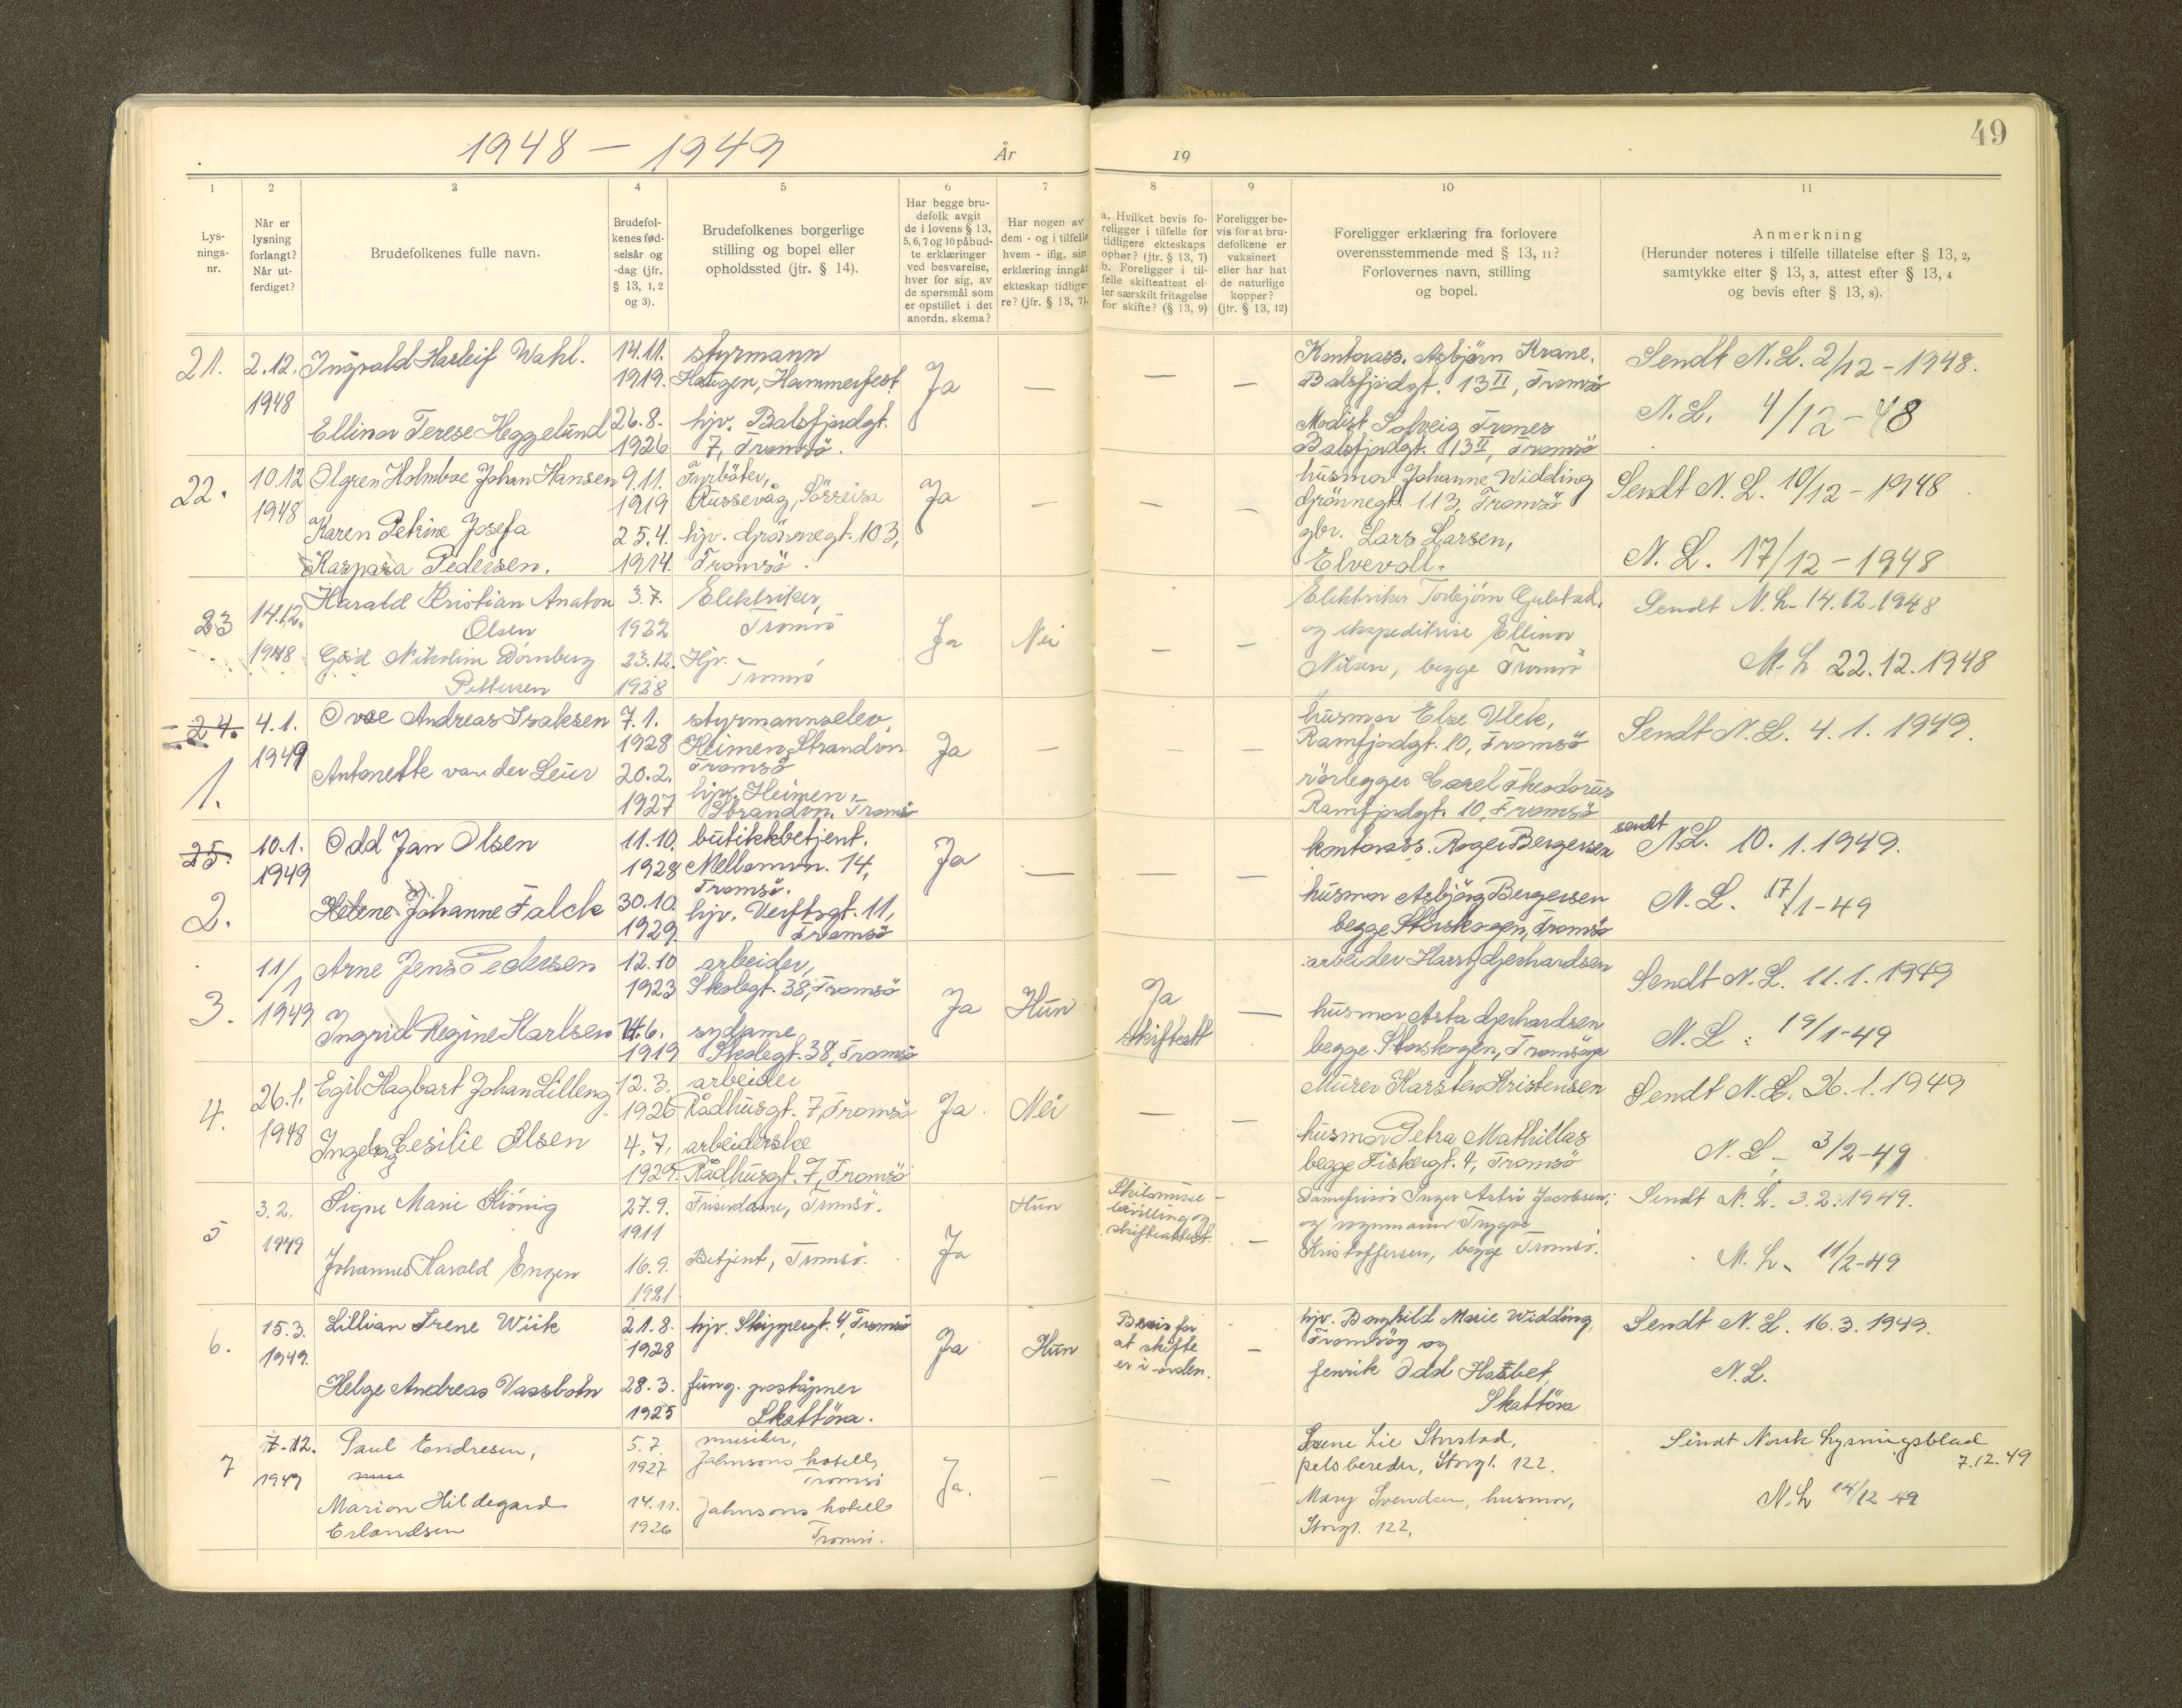 1948 – 1949
År
19
49
1
2
3
4
5
6
7
8
9
10
11
Lys-
nings-
nr.
Når er
lysning
forlangt?
Når ut-
ferdiget?
Brudefolkenes fulle navn.
Brudefol-
kenes fød-
selsår og
-dag (jfr.
§ 13, 1, 2
og 3).
Brudefolkenes borgerlige
stilling og bopel eller
opholdssted (jfr. § 14).
Har begge bru-
defolk avgit
de i lovens § 13,
5, 6, 7 og 10 påbud-
te erklæringer
ved besvarelse,
hver for sig, av
de spørsmål som
er opstillet i det
anordn. skema?
Har nogen av
dem - og i tilfelle
hvem - iflg. sin
erklæring inngått
ekteskap tidlige-
re? (jfr. § 13, 7).
a. Hvilket bevis fo-
religger i tilfelle for
tidligere ekteskaps
ophør? (jfr. § 13, 7)
b. Foreligger i til-
felle skifteattest el-
ler særskilt fritagelse
for skifte? (§ 13, 9)
Foreligger be-
vis for at bru-
defolkene er
vaksinert
eller har hat
de naturlige
kopper?
(jfr. § 13, 12)
Foreligger erklæring fra forlovere
overensstemmende med § 13, 11?
Forlovernes navn, stilling
og bopel.
Anmerkning
(Herunder noteres i tilfelle tillatelse efter § 13, 2,
samtykke efter § 13, 3, attest efter § 13, 4
og bevis efter § 13, 8).
21.
2.12.
1948
Ingvald Harleif Wahl.
Ellinor Terese Heggelund
14.11.
1919.
26.8.
1926
styrmann
Haugen, Hammerfest
hjv. Balsfjordgt.
7, Tromsö.
Ja
—
—
—
Kontorass. Asbjörn Krane.
Balsfjordgt. 13 II, Tromsö
Modist Solveig Trones
Balsfjordgt. 13 II, Tromsö
Sendt N.L. 2/12 - 1948.
N.L. 4/12 - 48
22.
10.12
1948
Olgren Holmboe Johan Hansen
Karen Petrine Josefa
Kaspara Pedersen.
9.11.
1919
25.4.
1914.
Fyrböter,
Russevåg, Sörreisa
hjv. Grönnegt. 103,
Tromsö.
Ja
—
—
—
husmor Johanne Widding
Grönnegt. 113, Tromsö
gbr. Lars Larsen,
Elvevoll.
Sendt N.L. 10/12 - 1948
N.L. 17/12 - 1948
23
14.12.
1948
Harald Kristian Anaton
Olsen
Nikoline Dörnberg
Pettersen
3.7.
1922
23.12.
1928
Elektriker,
Tromsö
Hjv.
Tromsö
Ja
Nei
—
—
Elektriker Torbjörn Gulstad,
og ekspeditrise Ellinor
Nilsen, begge Tromsö
Sendt N.L. 14.12.1948
N.L. 22.12.1948
24.
1.
4.1.
1949
Ovae Andreas Isaksen
Antonette van der Leur
7.1.
1928
20.2.
1927
styrmannselev,
Heimen, Strandvn
Tromsö
hjv. Heimen,
Strandvn. Tromsö
Ja
—
—
—
husmor Else Vlek,
Ramfjordgt. 10, Tromsö
rörlegger Carel Theodorus
Ramfjordgt. 10, Tromsö
Sendt N.L. 4.1.1949.
25.
2.
10.1.
1949
Odd Jan Olsen
Helene Johanne Falck
11.10.
1928
30.10.
1929.
butikkbetjent.
Mellomvn. 14,
Tromsö.
hjv. Verftsgt. 11,
Tromsö
Ja
—
—
—
kontorass. Roger Bergersen
husmor Asbjörg Bergersen
begge Storskogen, Tromsö
sendt
N.L. 10.1.1949.
N.L. 17/1-49
3.
11/1
1949
Arne Jens Pedersen
Ingrid Regine Karlsen
12.10
1923
14.6.
1919
arbeider,
Skolegt. 38, Tromsö
sydame
Skolegt. 38, Tromsö
Ja
Hun
Ja
skifteatt
—
arbeider Harry Gerhardsen
husmor Asta Gerhardsen
begge Storskogen, Tromsöya
Sendt N.L. 11.1.1949
N.L: 19/1-49
4.
26.1.
1948
Egil Hagbart Johan Lilleng
Ingeborg Cesilie Olsen
12.3.
1926
4.7.
1929.
arbeider
Rådhusgt. 7, Tromsö
arbeiderske
Rådhusgt. 7, Tromsö
Ja.
Nei
—
—
Murer Karsten Kristensen
husmor Petra Mathillas
begge Fiskergt. 4, Tromsö
Sendt N.L. 26.1.1949
N.L - 3/2-49
5
3.2.
1949
Signe Marie König
Johannes Harald Enzen
27.9.
1911
16.9.
1921
Friserdame, Tromsö.
Betjent, Tromsö.
Ja
Hun
Skilsmisse-
bevilling og
skifteattest.
—
Damefrisör Inger Astri Jacobsen,
og Trygve
Kristoffersen, begge Tromsö.
Sendt N.L. 3.2.1949.
N.L - 11/2-49
6.
15.3.
1949.
Lillian Irene Wiik
Helge Andreas Vassbotn
21.8.
1928
28.3.
1925
hjv. Skippergt. 4, Tromsö
fung. poståpner
Skattöra.
Ja
Hun
Bevis for
at skifte
er i orden.
—
hjv. Borghild Marie Widding,
Tromsö og
fenrik Odd Hatbet,
Skattöra
Sendt N.L. 16.3.1949.
N.L.
7
7.12.
1949
Paul Endresen,
Marion Hildegard
Erlandsen
5.7.
1927
14.11.
1926
musiker,
Jahnsons hotell,
Tromsö
Jahnsons hotell
Tromsö.
Ja.
—
—
—
Lie Storstad,
pelsbereder, Storgt. 122.
Mary Svendsen, husmor,
Storgt. 122,
Sendt Norsk Lysningsblad
7.12.49
N.L 14/12 49